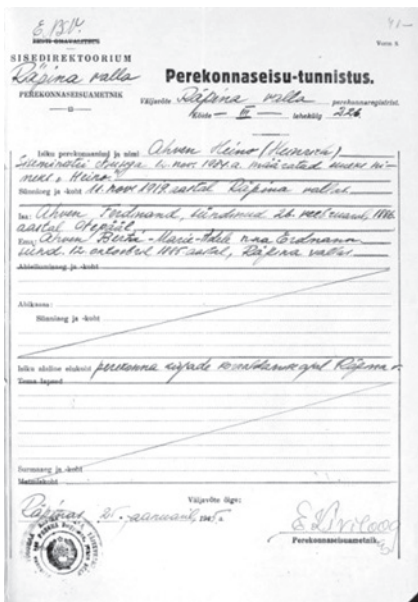 E.B.V.
41-
EESTI OMAVALITSUS
Vorm 3.
SISEDIREKTOORIUM
Räpina valla
PEREKONNASEISUAMETNIK
Perekonnaseisu-tunnistus.
Väljavõte Räpina valla perekonnaregistrist.
Köide — III — lehekülg 226
Isiku perekonnanimi ja nimi Ahven Heino (Heinrich)
Siseministri otsusega nov. 1921.a. määratud uueks ni-
meks „Heino"
Sünniaeg ja -koht 11. nov 1919 aastal Räpina vallas
Isa: Ahven Ferdinand, sündinud 26. veebruaril, 1886
aastal
Ema: Ahven Berta-Marie-Adele nna Erdmann
sünd. 12. oktoobril 1885 aastal, Räpina vallas
Abiellumisaeg ja -koht
Abikaasa:
Sünniaeg ja -koht
Isiku alaline elukoht perekonna kirjade korraldamise ajal Räpina v.
Tema lapsed
Surmaaeg ja -koht
Matmiskoht
Väljavõte õige:
Räpinas, 25. jaanuaril, 1945 a.
Perekonnaseisuametnik.